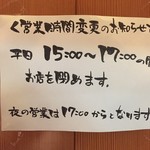 く営業時間変更のお知らせ
平日 15:00〜17:00の間
お店を閉めます。
夜の営業は17:00からとなります